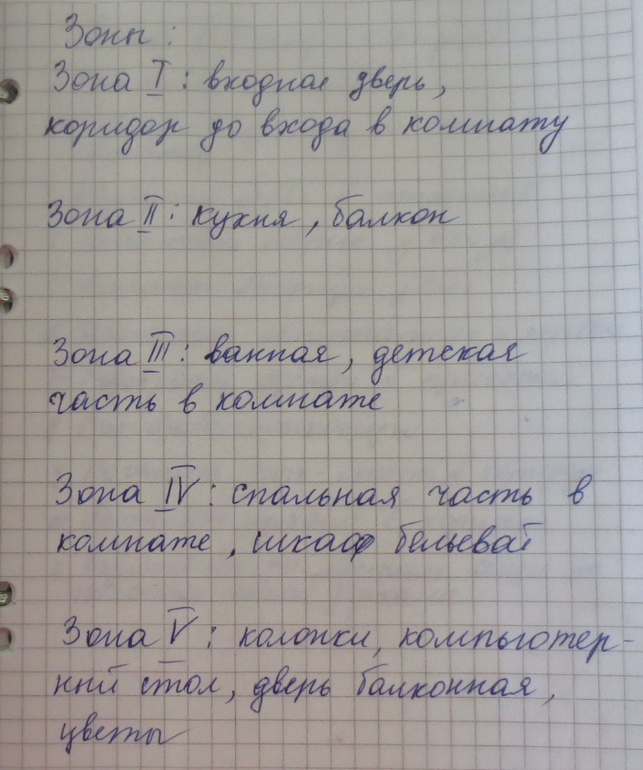 Зоны:
Зона I: входная дверь,
коридор до входа в комнату
Зона II: кухня, балкон
Зона III: ванная, детская
часть в комнате
Зона IV: спальная часть в
комнате, шкаф бельевой
Зона V: колонки, компьютер-
ный стол, дверь балконная,
цветы